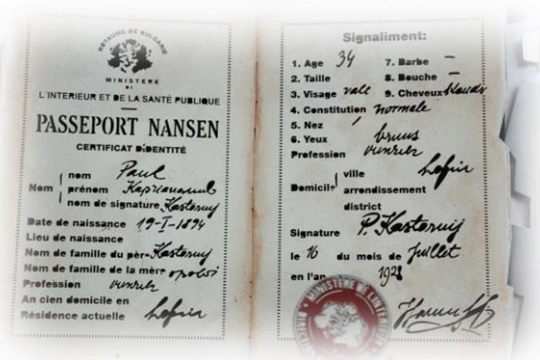 ROYAUME DE BULGARIE
MINISTERE
DE
L'INTERIEUR ET DE LA SANTÉ PUBLIQUE
PASSEPORT NANSEN
CERTIFICAT D'IDENTITÉ
Nom
nom Paul
prénom
nom de signature Kastornij
Date de naissance 19-I-1894
Lieu de naissance
Nom de famille du père Kastornij
Nom de famille de la mère
Profession ouvrier
An cien domicile en
Résidence actuelle Sofia
Signaliment:
1. Age 34
2. Taille
3. Visage vale
4. Constitution normale
5. Nez
6. Yeux bruns
7. Barbe —
8. Bouche —
9. Cheveux blonds
Profession ouvrier
Domicile
ville Sofia
arrondissement
district
Signature P. Kastornij
le 16 du mois de Juillet
en l'an 1928
MINISTÈRE DE L'INTERIEUR